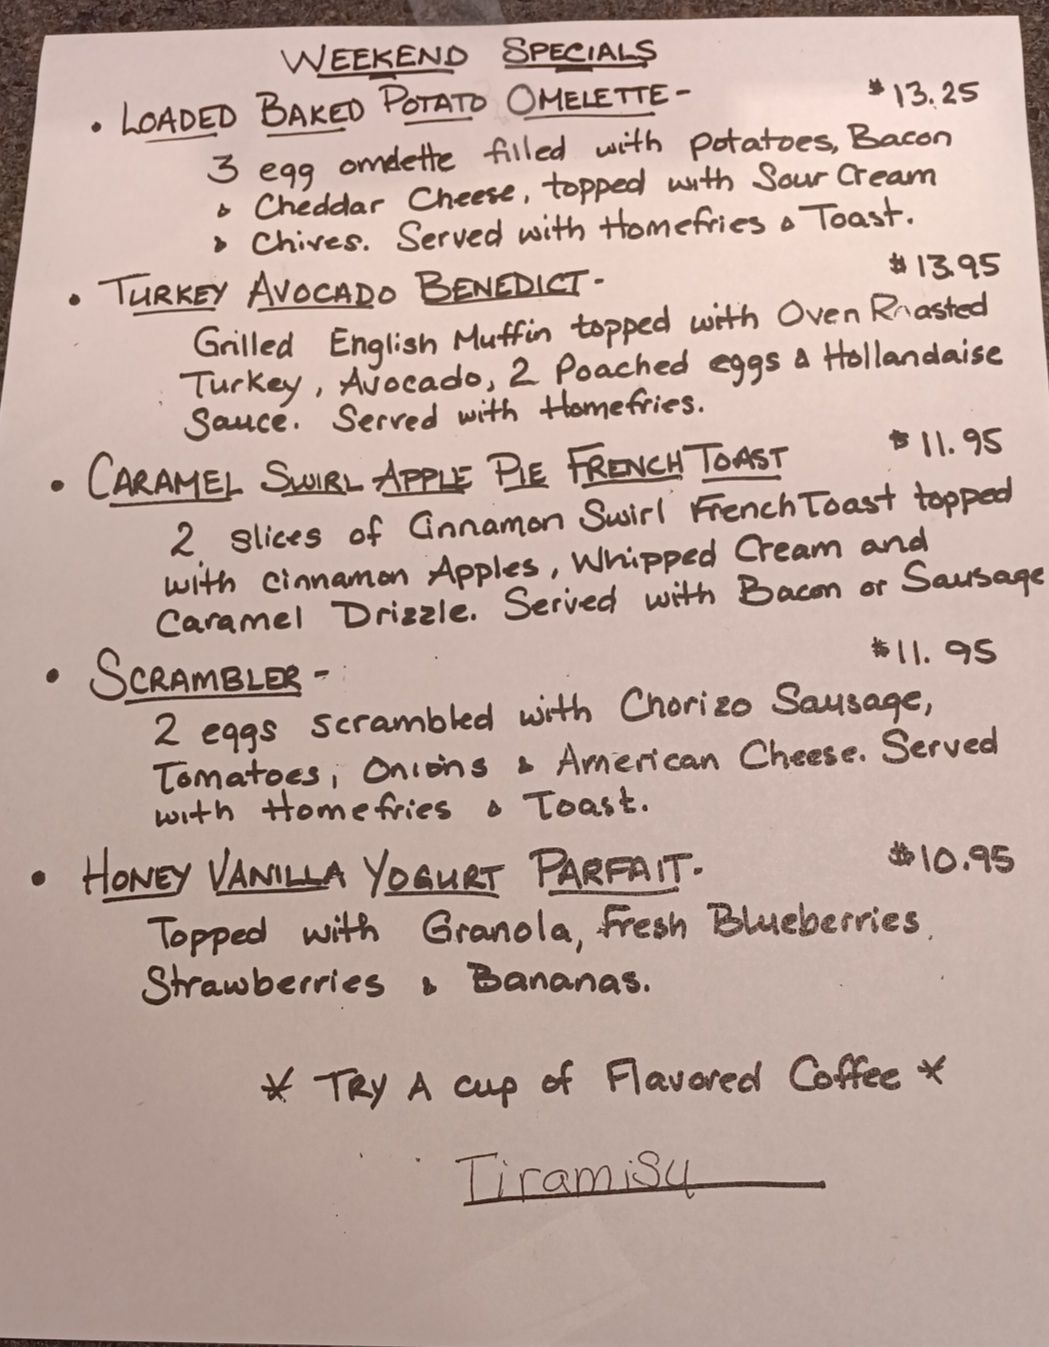 WEEKEND SPECIALS
• LOADED BAKED POTATO OMELETTE - $13.25
3 egg omelette filled with potatoes, Bacon
& Cheddar Cheese, topped with Sour Cream
& Chives. Served with Homefries & Toast.
• TURKEY AVOCADO BENEDICT - $13.95
Grilled English Muffin topped with Oven Roasted
Turkey, Avocado, 2 Poached eggs & Hollandaise
Sauce. Served with Homefries.
• CARAMEL SWIRL APPLE PIE FRENCH TOAST $11.95
2 slices of Cinnamon Swirl French Toast topped
with cinnamon Apples, Whipped Cream and
Caramel Drizzle. Served with Bacon or Sausage
• SCRAMBLER - $11.95
2 eggs scrambled with Chorizo Sausage,
Tomatoes, Onions & American Cheese. Served
with Homefries & Toast.
• HONEY VANILLA YOGURT PARFAIT - $10.95
Topped with Granola, Fresh Blueberries,
Strawberries & Bananas.
* TRY A cup of Flavored Coffee *
Tiramisu